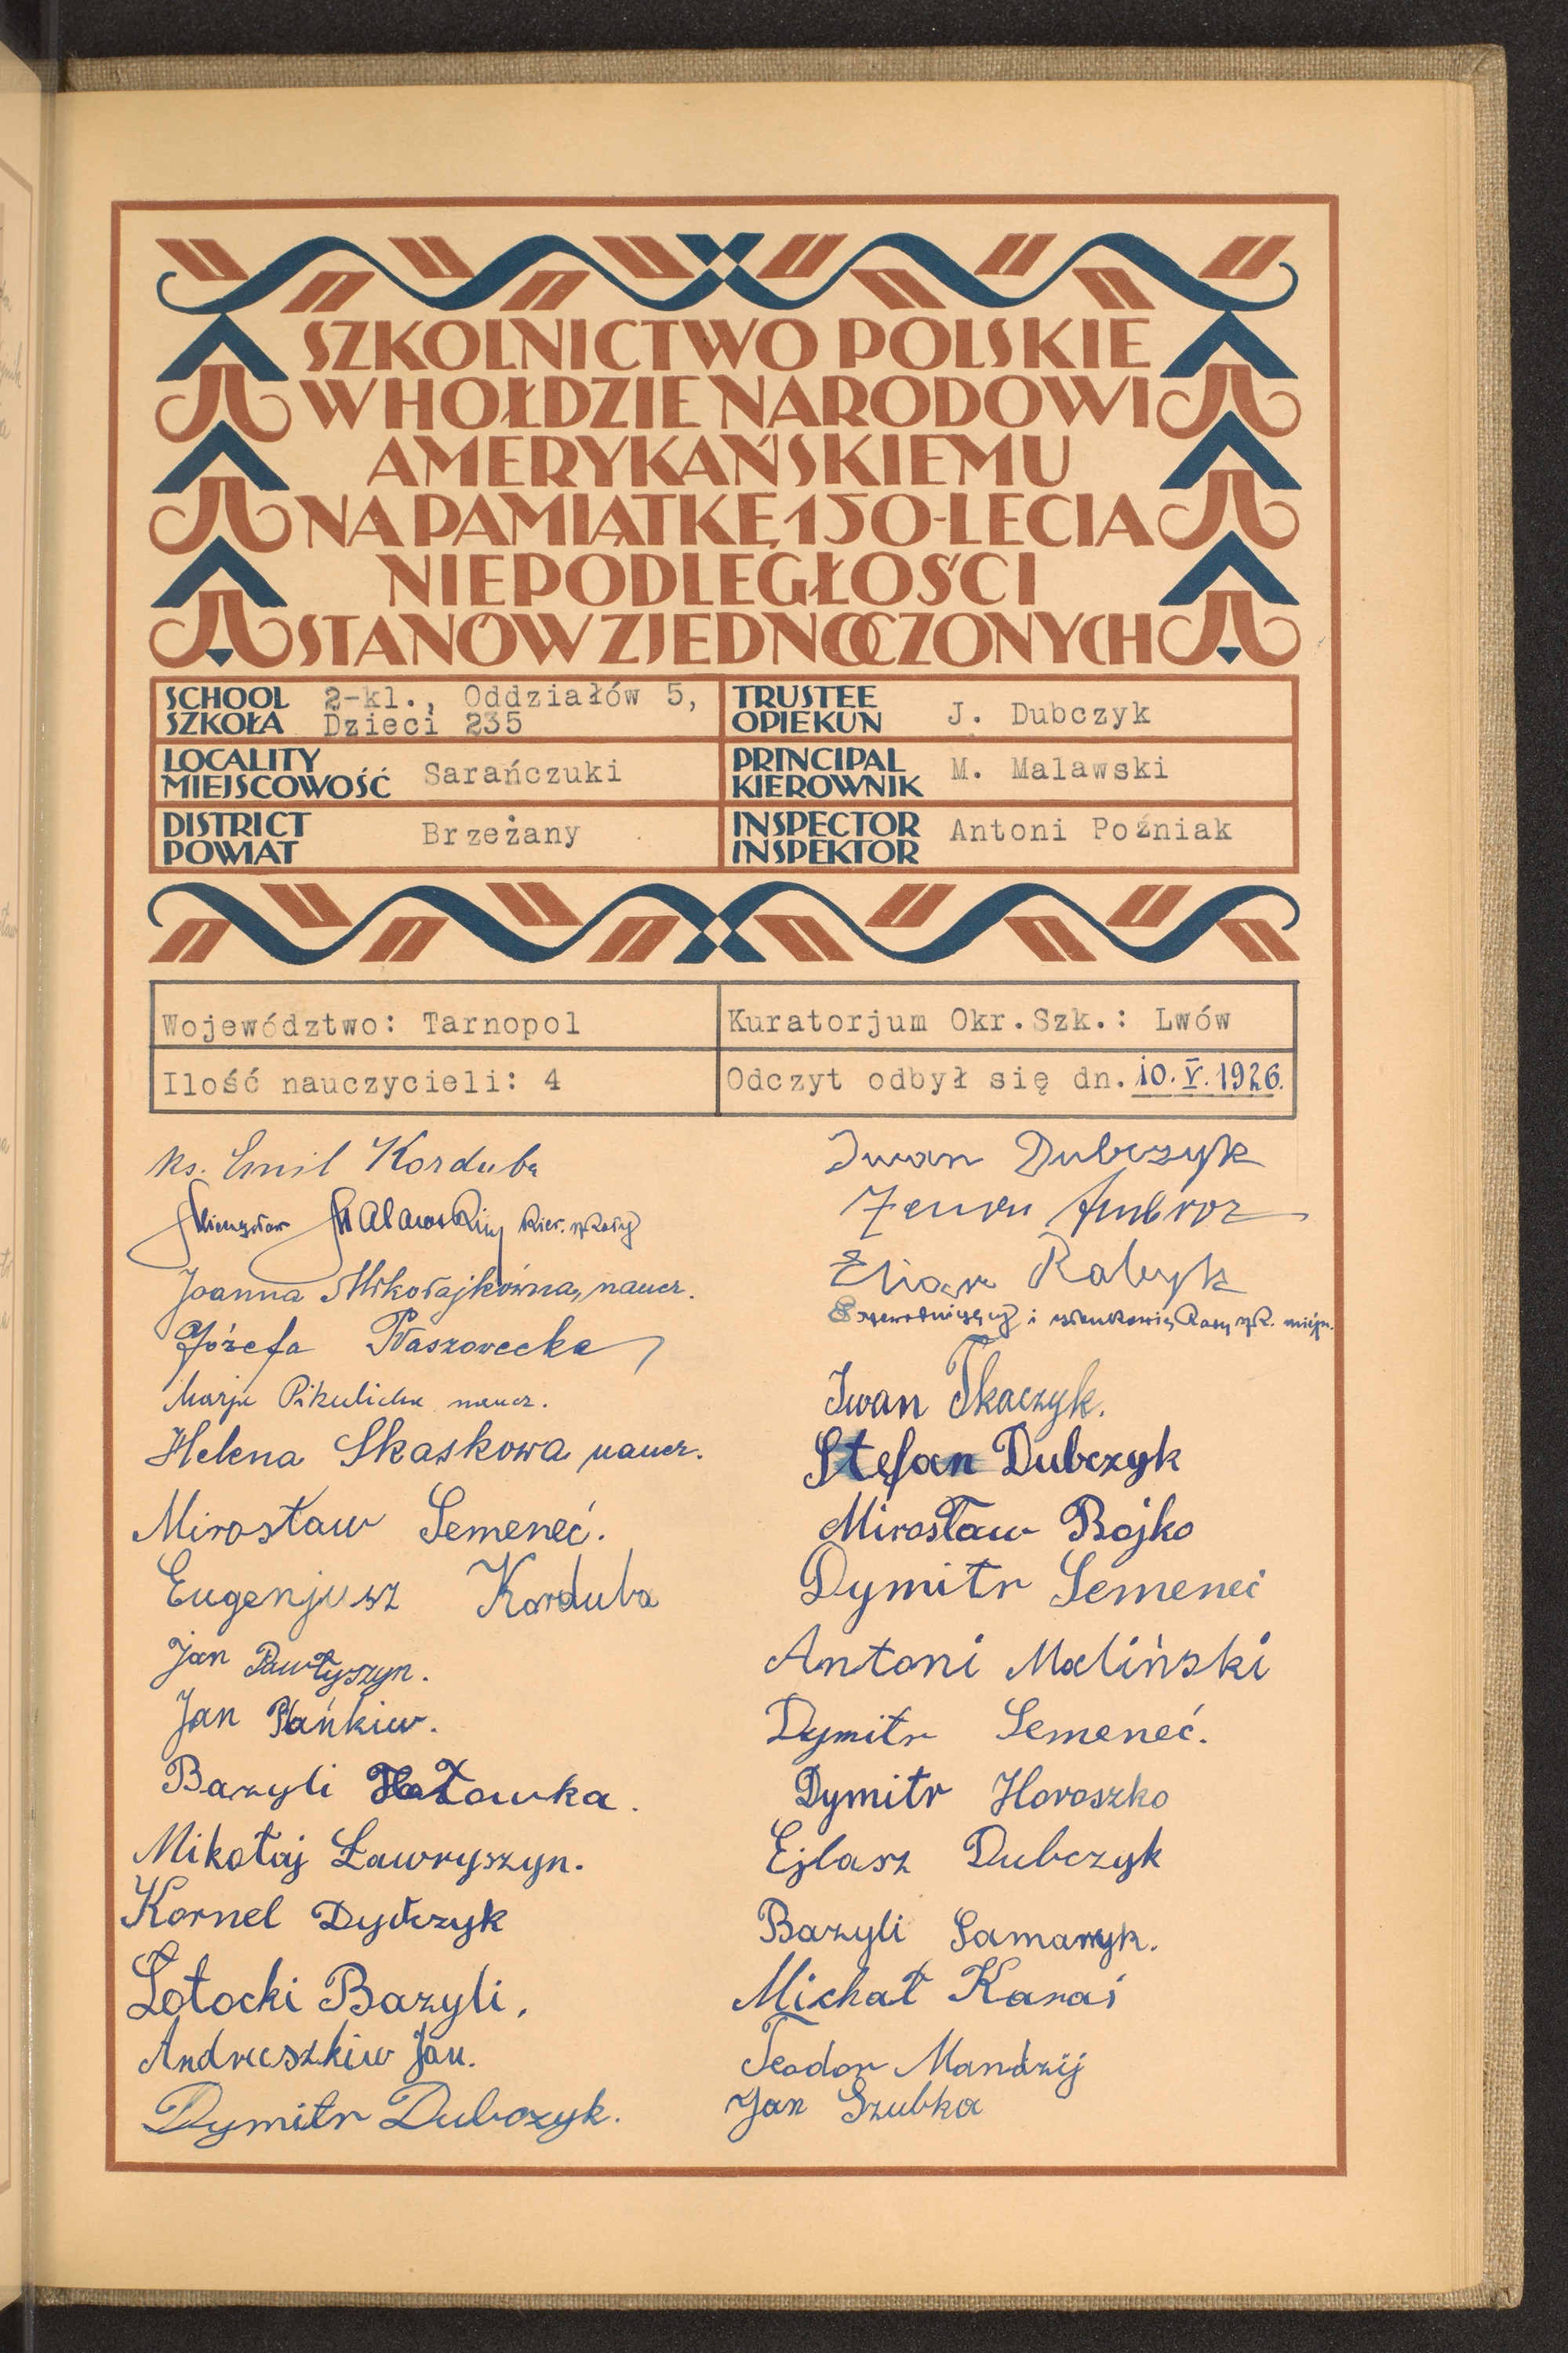 SZKOLNICTWO POLSKIE
W HOŁDZIE NARODOWI
AMERYKAŃSKIEMU
NA PAMIĄTKĘ 150-LECIA
NIEPODLEGŁOŚCI
STANÓW ZJEDNOCZONYCH
SCHOOL
SZKOŁA
2-kl., Oddziałów 5,
Dzieci 235
TRUSTEE
OPIEKUN
J. Dubczyk
LOCALITY
MIEJSCOWOŚĆ
Sarańczuki
PRINCIPAL
KIEROWNIK
M. Malawski
DISTRICT
POWIAT
Brzeżany
INSPECTOR
INSPEKTOR
Antoni Poźniak
Województwo: Tarnopol
Kuratorjum Okr.Szk.: Lwów
Ilość nauczycieli: 4
Odczyt odbył się dn. 10. V. 1926.
ks. Emil Korduba
Mieczysław Malawski kier. szkoły
Joanna Mikołajkówna, naucz.
Józefa
Marja naucz.
Helena Skaskowa naucz.
Mirosław Semeneć.
Eugenjusz Korduba
Jan Pawłyszyn.
Jan Pańkiw.
Bazyli Hołowka.
Mikołaj Ławryszyn.
Kornel
Łotocki Bazyli,
Andreeszkiw Jan.
Dymitr Dubczyk.
Iwan Dubczyk
Ambroz
Rabyk
Przewodniczący i członkowie Rady szk. miejsc.
Iwan Tkaczyk.
Stefan Dubczyk
Mirosław Bojko
Dymitr Semeneć
Antoni Maliński
Dymitr Semeneć.
Dymitr Horoszko
Ejlasz Dubczyk
Bazyli
Michał Karaś
Teodor Mandzij
Jan Szubka